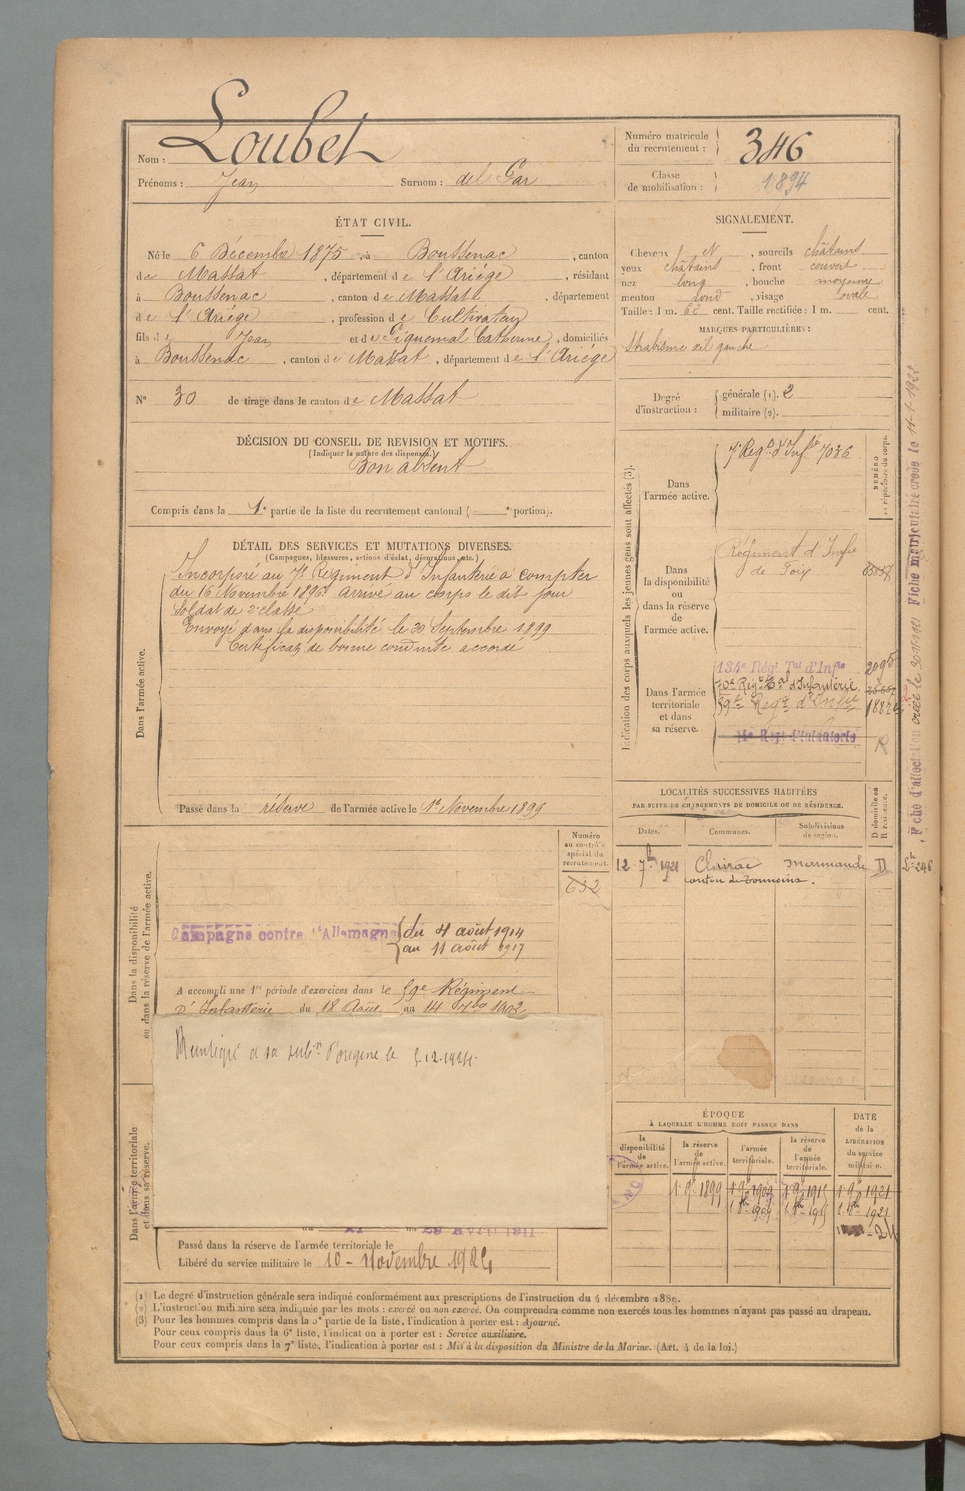 Nom : Loubet
Prénoms : Jean Surnom : del Gar
Numéro matricule
du recrutement : 346
Classe
de mobilisation : 1894
ÉTAT CIVIL.
Né le 6 Décembre 1875 à Boussenac, canton
de Massat, département de l'Ariège, résidant
à Boussenac, canton de Massat, département
de l'Ariège, profession de Cultivateur
fils de Jean et de Piquemal Catherine, domiciliés
à Boussenac, canton de Massat, département de l'Ariège
N° 30 de tirage dans le canton de Massat
SIGNALEMENT.
Cheveux et, sourcils châtains
yeux châtains, front couvert
nez long, bouche moyenne
menton rond, visage ovale
Taille : 1 m. 62 cent. Taille rectifiée : 1 m. cent.
MARQUES PARTICULIÈRES :
Strabisme œil gauche
Degré
d'instruction :
générale (1). 2
militaire (2).
DÉCISION DU CONSEIL DE REVISION ET MOTIFS.
(Indiquer la nature des dispenses.)
Bon absent
Compris dans la 1e partie de la liste du recrutement cantonal ( e portion).
DÉTAIL DES SERVICES ET MUTATIONS DIVERSES.
(Campagnes, blessures, actions d'éclat, décorations, etc.)
Dans l'armée active.
Incorporé au 7e Régiment d'Infanterie à compter
du 16 Novembre 1896 arrivé au corps le dit jour
Soldat de 2e classe
Envoyé dans la disponibilité le 30 Septembre 1899
Certificat de bonne conduite accordé
Passé dans la réserve de l'armée active le 1er Novembre 1899
Indication des corps auxquels les jeunes gens sont affectés (3).
NUMÉRO
au répertoire du corps.
Dans
l'armée active.
7e Régt d'Infie 7036
Dans
la disponibilité
ou
dans la réserve
de
l'armée active.
Régiment d'Infie
de Foix
Dans l'armée
territoriale
et dans
sa réserve.
134e Régt Tal d'Infie
59e Régt d'Infie
R
LOCALITÉS SUCCESSIVES HABITÉES
PAR SUITE DE CHANGEMENTS DE DOMICILE OU DE RÉSIDENCE.
Dates.
Communes.
Subdivisions
de région.
D domicile ou
R résidence.
12 7bre 1921 Clairac Marmande D
canton de Tonneins.
Dans la disponibilité
ou dans la réserve de l'armée active.
Numéro
au contrôle
spécial du
recrutement.
632
Campagne contre l'Allemagne du 4 août 1914
au 11 août 1917
A accompli une 1re période d'exercices dans le 59e Régiment
d'Infanterie du 18 Août au 14 7bre 1902
Réintégré à sa subon d'origine le 5.12.1924.
Dans l'armée territoriale
et dans sa réserve.
Avril 1911
Passé dans la réserve de l'armée territoriale le
Libéré du service militaire le 10 - Novembre 1924
ÉPOQUE
À LAQUELLE L'HOMME DOIT PASSER DANS
la
disponibilité
de
l'armée active.
la réserve
de
l'armée active.
l'armée
territoriale.
la réserve
de
l'armée
territoriale.
DATE
de la
LIBÉRATION
du service
militaire.
1. 9bre 1899 1. 9bre 1909 1. 9bre 1915 1. 9bre 1921
Fiche d'affectation créée le Fiche matriculaire créée le 11-1-1922
(1) Le degré d'instruction générale sera indiqué conformément aux prescriptions de l'instruction du 4 décembre 1889.
(2) L'instruction militaire sera indiquée par les mots : exercé ou non exercé. On comprendra comme non exercés tous les hommes n'ayant pas passé au drapeau.
(3) Pour les hommes compris dans la 5e partie de la liste, l'indication à porter est : Ajourné.
Pour ceux compris dans la 6e liste, l'indication à porter est : Service auxiliaire.
Pour ceux compris dans la 7e liste, l'indication à porter est : Mis à la disposition du Ministre de la Marine. (Art. 4 de la loi.)